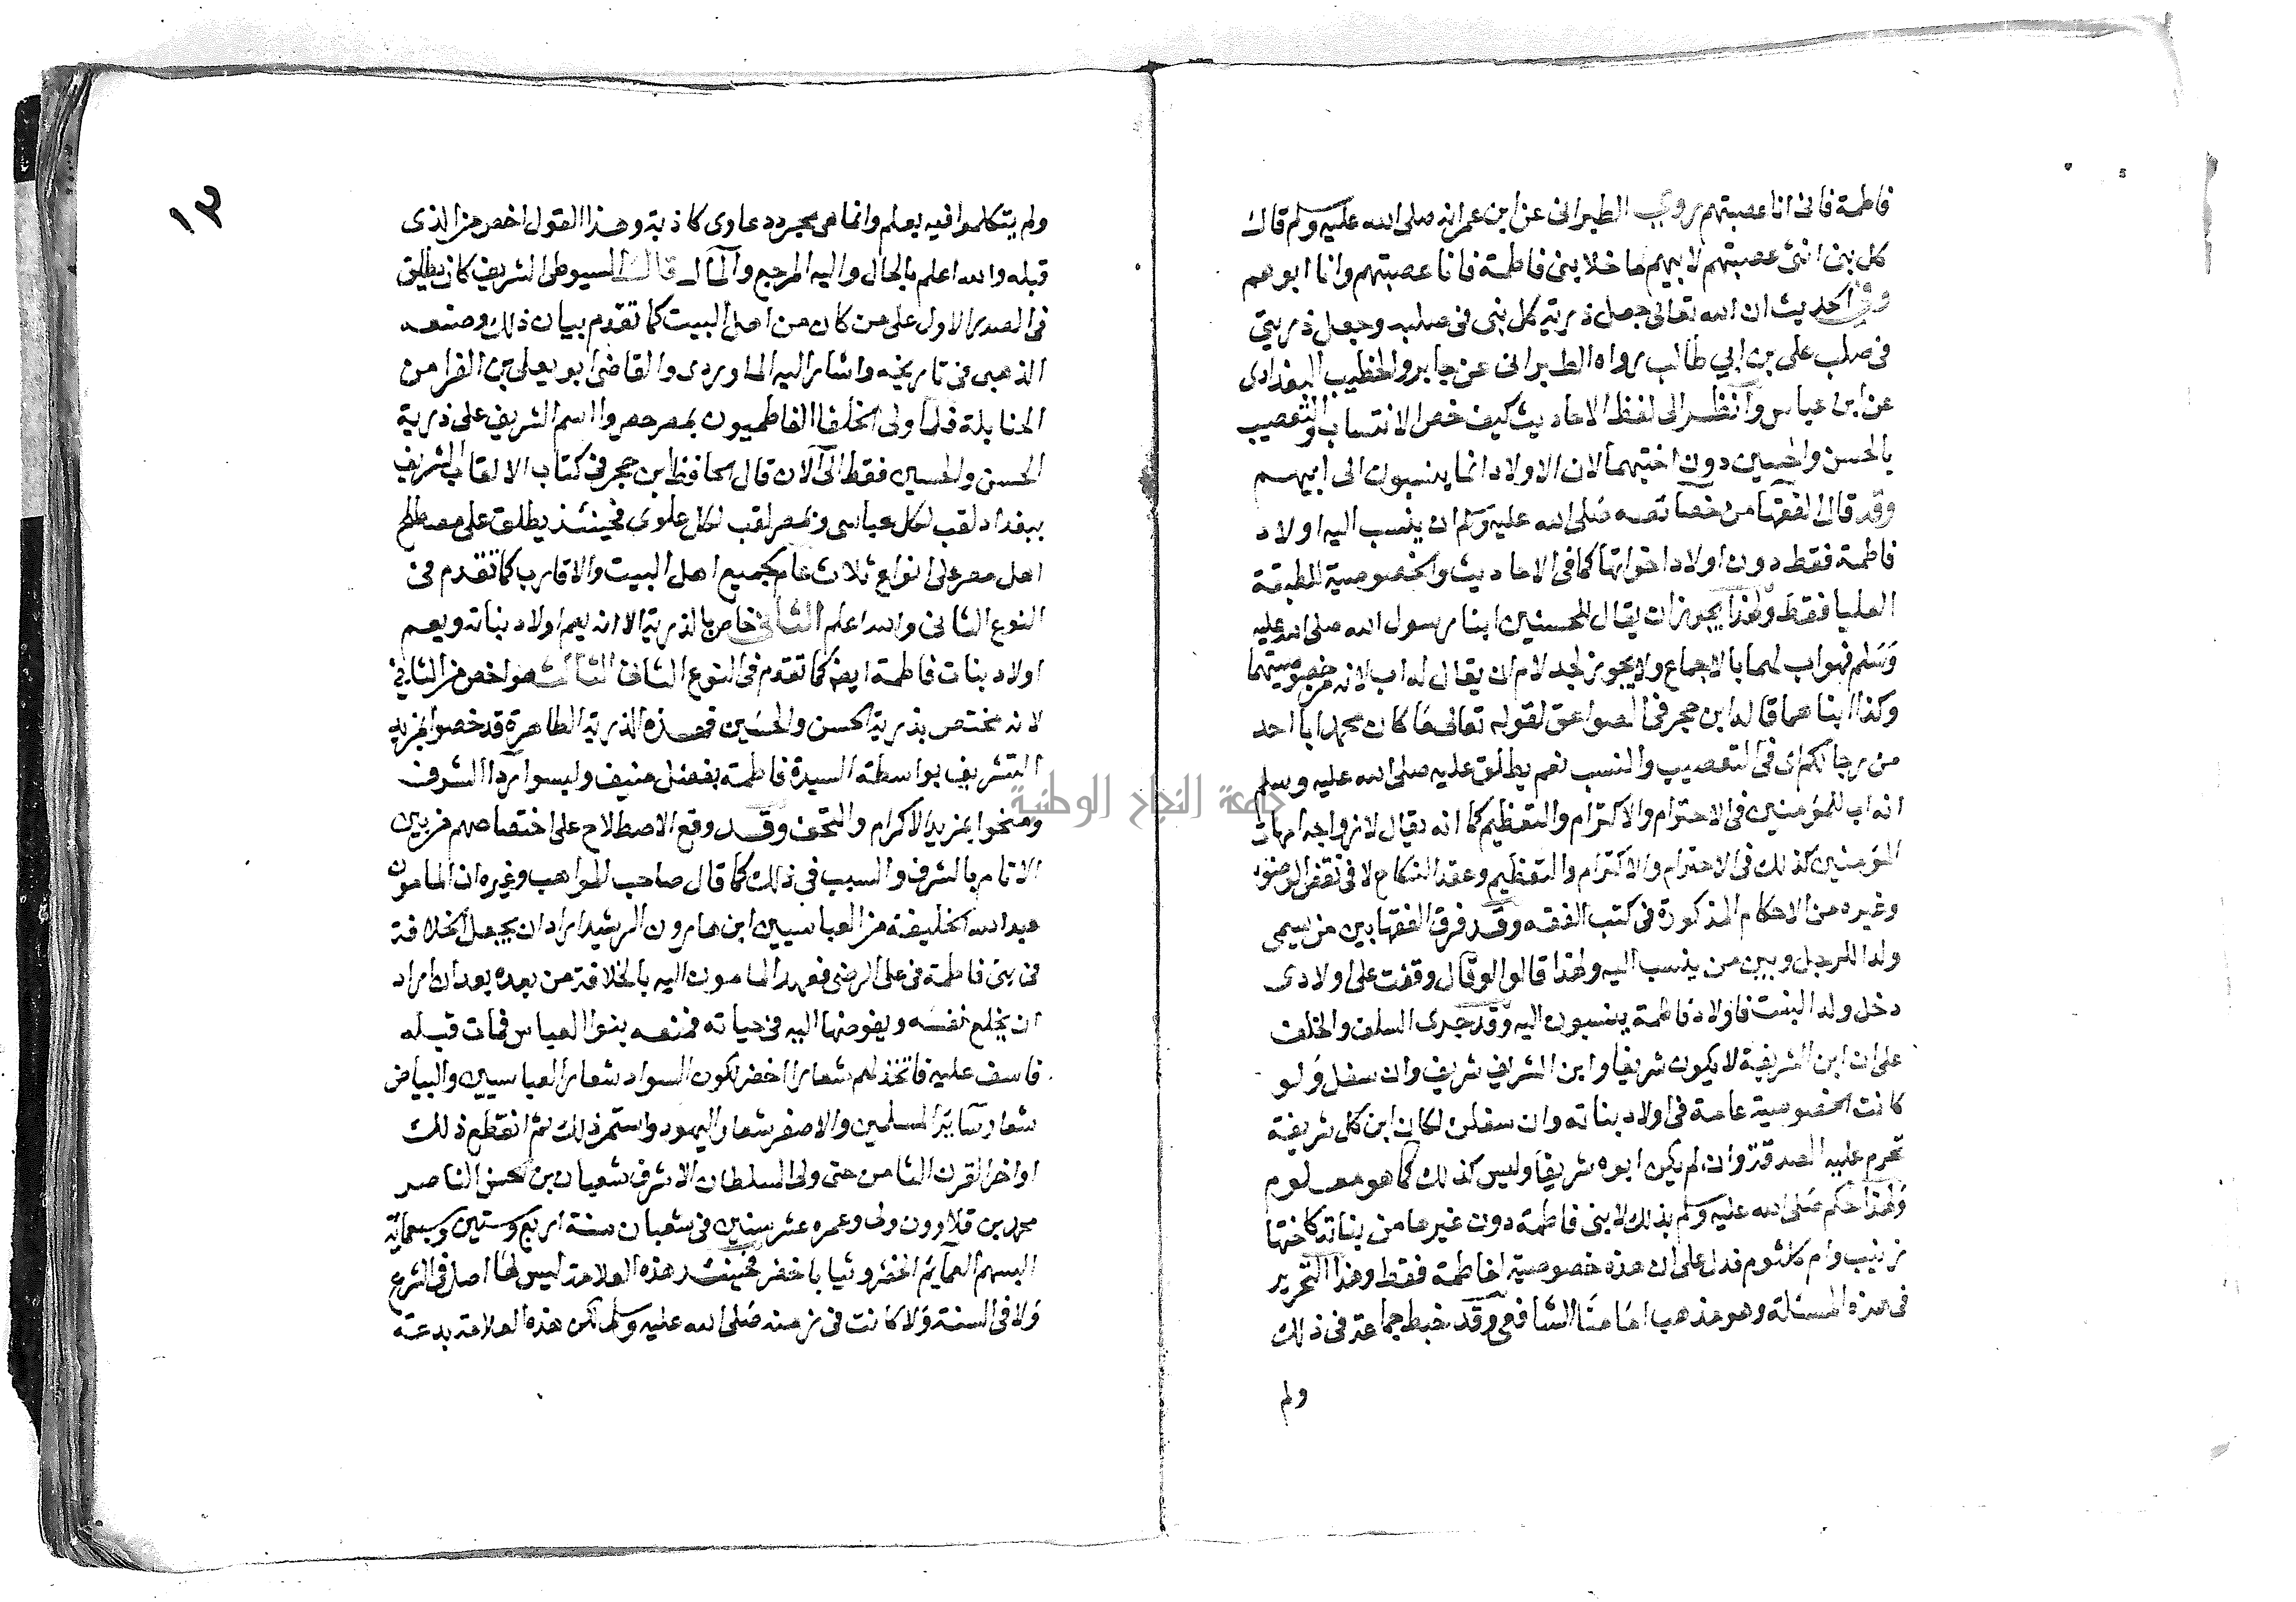 فاطمة فانى انا عصبتهم روي الطبرانى عن ابن عمر انه صلى الله عليه وسلم قال
كل بنى انثى عصبتهم لابيهم ما خلا بنى فاطمة فانا عصبتهم وانا ابوهم
وفى الحديث ان الله تعالى جعل ذرية كل بنى فى صلبه وجعل ذريتى
فى صلب على بن ابي طالب رواه الطبرانى عن جابر والخطيب البغدادى
عن ابن عباس وانظر الى لفظ الاحاديث كيف خص الانتساب والتعصيب
بالحسن والحسين دون اختيهما لان الاولاد انما ينسبون الى ابيهم
وقد قال الفقها من خصائصه صلى الله عليه وسلم ان ينسب اليه اولاد
فاطمة فقط دون اولاد اخواتها كما فى الاحاديث والخصوصية للطبقة
العليا فقط ولهذا يجوز ان يقال للحسنين ابنا رسول الله صلى الله عليه
وسلم فهو اب لهما بالاجماع ولا يجوز لجد لام ان يقال له اب لانه من خصوصيتهما
وكذا ابناهما قاله ابن حجر فى الصواعق لقوله تعالى ما كان محمد ابا احد
من رجالكم اى فى التعصيب والنسب نعم يطلق عليه صلى الله عليه وسلم
انه اب للمؤمنين فى الاحترام والاكترام والتعظيم كما انه يقال لازواجه امهات
المؤمنين كذلك فى الاحترام والاكترام والتعظيم وعقد النكاح لا فى نقض الوضوء
وغيره من الاحكام المذكورة فى كتب الفقه وقد فرق الفقها بين من يسمى
ولدا للرجل وبين من ينسب اليه ولهذا قالوا لو قال وقفت على اولادى
دخل ولد البنت فاولاد فاطمة ينسبون اليه وقد جرى السلف والخلف
على ان ابن الشريفة لا يكون شريفا وابن الشريف شريف وان سفل ولو
كانت الخصوصية عامة فى اولاد بناته وان سفلن لكان ابن كل شريفة
تحرم عليه الصدقة وان لم يكن ابوه شريفا وليس كذلك كما هو معلوم
ولهذا حكم صلى الله عليه وسلم بذلك لابنى فاطمة دون غيرها من بناته كاختها
زينب وام كلثوم فدل على ان هذه خصوصية لفاطمة فقط وهذا التحرير
فى هذه المسئلة وهو مذهب امامنا الشافعي وقد خبط جماعة فى ذلك
ولم
١٣
ولم يتكلموا فيه بعلم وانما هى مجرد دعاوى كاذبة وهذا القول اخص من الذى
قبله والله اعلم بالحال واليه المرجع والمآل قال السيوطى الشريف كان يطلق
فى الصدر الاول على من كان من اهل البيت كما تقدم بيان ذلك وصنعه
الذهبى فى تاريخه واشار اليه الماوردى والقاضى ابو يعلى بن الفرا من
الحنابلة فلما ولى الخلفا الفاطميون بمصر حصروا اسم الشريف على ذرية
الحسن والحسين فقط الى الآن قال الحافظ ابن حجر فى كتاب الالقاب الشريف
ببغداد لقب لكل عباسى وبمصر لقب لكل علوى فحينئذ يطلق على مصطلح
اهل مصر على انواع ثلاث عام لجميع اهل البيت والاقارب كما تقدم فى
النوع الثانى والله اعلم الثانى خاص بالذرية الا انه يعم اولاد بناته ويعم
اولاد بنات فاطمة ايضا كما تقدم فى النوع الثانى الثالث هو اخص من الثانى
لانه مختص بذرية الحسن والحسين فهذه الذرية الطاهرة قد خصوا بمزيد
التشريف بواسطة السيدة فاطمة بفضل منيف ولبسوا ردا الشرف
ومنحوا بمزيد الاكرام والتحف وقد وقع الاصطلاح على اختصاصهم من بين
الانام بالشرف والسبب فى ذلك كما قال صاحب المواهب وغيره ان المامون
عبد الله الخليفة من العباسيين ابن هارون الرشيد اراد ان يجعل الخلافة
فى بنى فاطمة فى على الرضى فعهد المامون اليه بالخلافة من بعده بعد ان اراد
ان يخلع نفسه ويفوضها اليه فى حياته فمنعه بنوا العباس فمات قبله
فاسف عليه فاتخذ لهم شعارا اخضر لكون السواد شعار العباسيين والبياض
شعار سائر المسلمين والاصفر شعار اليهود واستمر ذلك ثم انقطع ذلك
اواخر القرن الثامن حتى ولى السلطان الاشرف شعبان بن الحسن الناصر
محمد بن قلاوون ولى وعمره عشر سنين فى شعبان سنة اربع وستين وسبعمائة
البسهم العمائم الخضر وثيابا خضر فحينئذ هذه العلامة ليس لها اصل فى الشرع
ولا فى السنة ولا كانت فى زمنه صلى الله عليه وسلم لكن هذه العلامة بدعة
جامعة النجاح الوطنية